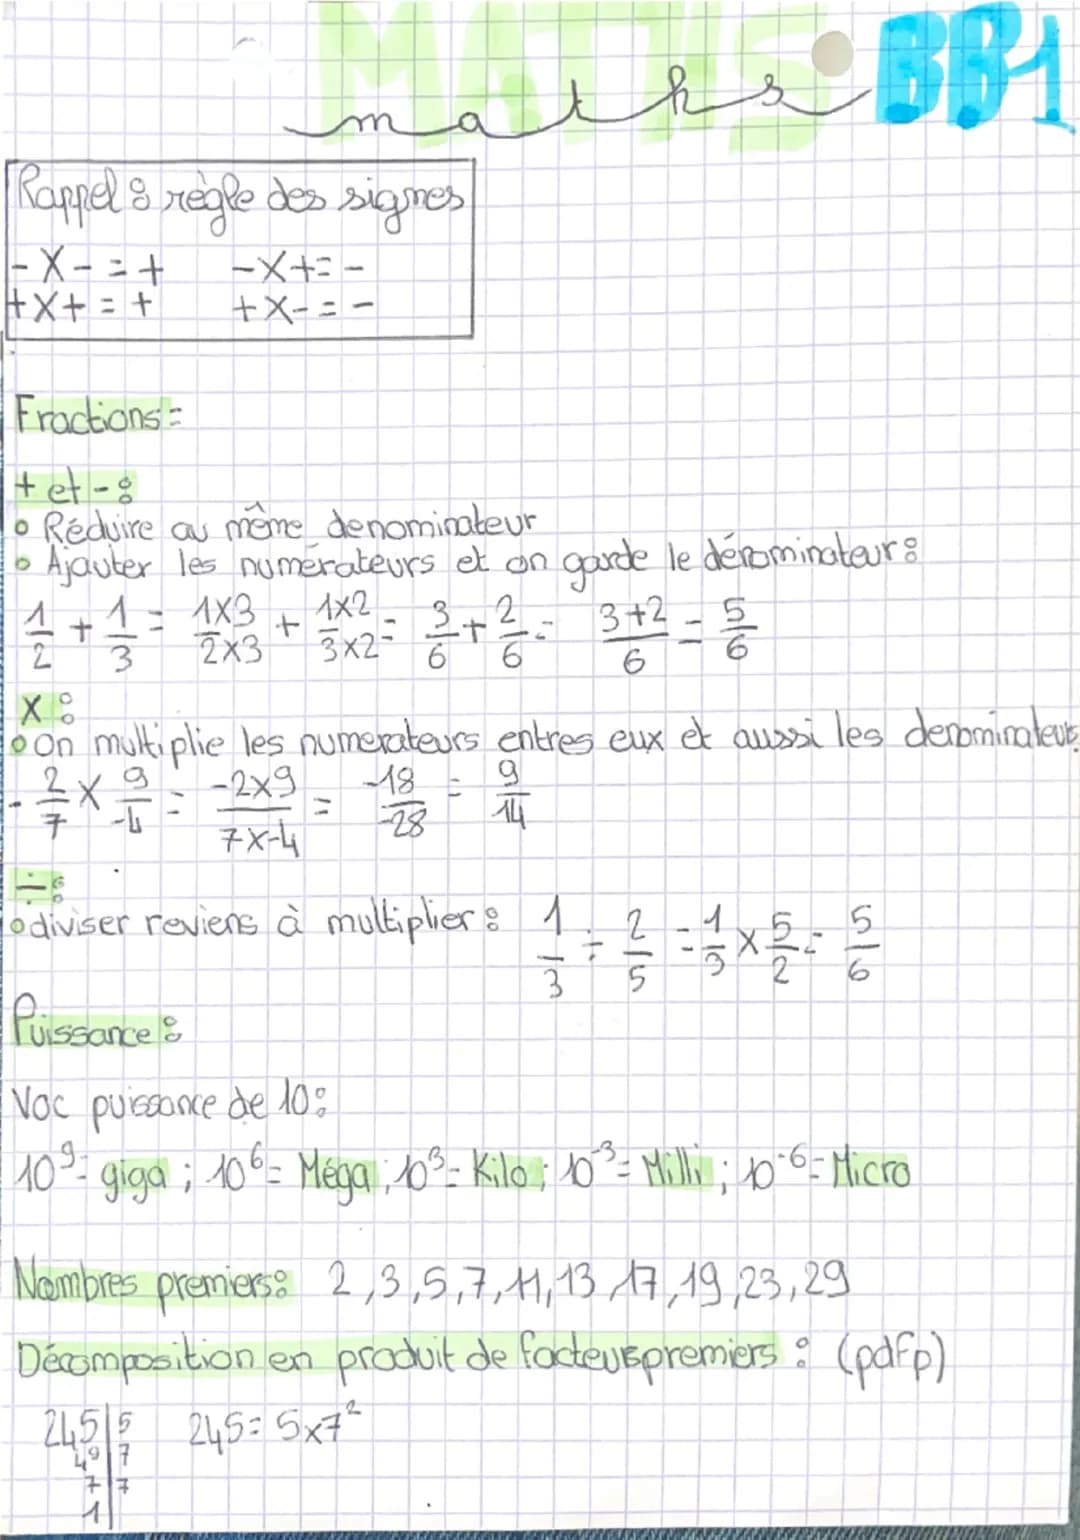 MATHS BB1
maths
Rappel : règle des signes
- X - = + - X + = -
+ X + = + + X - = -
Fractions :
+ et - :
• Réduire au même denominateur
• Ajauter les numérateurs et on garde le dénominateur :
1/2 + 1/3 = 1X3/2X3 + 1X2/3X2 = 3/6 + 2/6 = 3+2/6 = 5/6
X :
• on multiplie les numerateurs entres eux et aussi les denominateurs
- 2/7 X 9/-4 = -2x9/7X-4 = -18/-28 = 9/14
÷ :
• diviser reviens à multiplier : 1/3 ÷ 2/5 = 1/3 X 5/2 = 5/6
Puissance :
Voc puissance de 10 :
10⁹ = giga ; 10⁶ = Méga ; 10³ = Kilo ; 10⁻³ = Milli ; 10⁻⁶ = Micro
Nombres premiers : 2, 3, 5, 7, 11, 13, 17, 19, 23, 29
Décomposition en produit de facteurs premiers : (pdfp)
245 | 5 245 = 5x7²
49 | 7
7 | 7
1 |